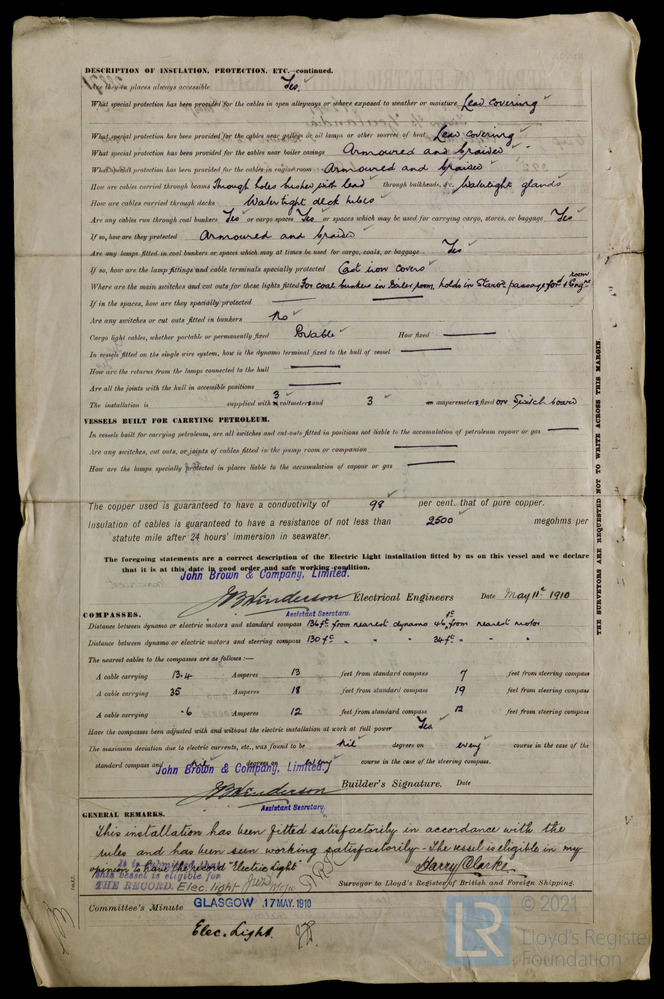 DESCRIPTION OF INSULATION, PROTECTION, ETC.—continued.
Are they in places always accessible Yes
What special protection has been provided for the cables in open alleyways or where exposed to weather or moisture Lead covering
What special protection has been provided for the cables near galleys or oil lamps or other sources of heat Lead covering
What special protection has been provided for the cables near boiler casings Armoured and braided
What special protection has been provided for the cables in engine room Armoured and braided
How are cables carried through beams Through holes bushed with lead through bulkheads, &c. Watertight glands
How are cables carried through decks Watertight deck tubes
Are any cables run through coal bunkers Yes or cargo spaces Yes or spaces which may be used for carrying cargo, stores, or baggage Yes
If so, how are they protected Armoured and braided
Are any lamps fitted in coal bunkers or spaces which may at times be used for cargo, coals, or baggage Yes
If so, how are the lamp fittings and cable terminals specially protected Cast iron covers
Where are the main switches and cut outs for these lights fitted For coal bunkers in boiler room, holds in Starbd passage for'd & Engine room
If in the spaces, how are they specially protected
Are any switches or cut outs fitted in bunkers No
Cargo light cables, whether portable or permanently fixed Portable How fixed
In vessels fitted on the single wire system, how is the dynamo terminal fixed to the hull of vessel
How are the returns from the lamps connected to the hull
Are all the joints with the hull in accessible positions
The installation is supplied with 3 voltmeters and 3 amperemeters fixed on Switch board
VESSELS BUILT FOR CARRYING PETROLEUM.
In vessels built for carrying petroleum, are all switches and cut-outs fitted in positions not liable to the accumulation of petroleum vapour or gas
Are any switches, cut outs, or joints of cables fitted in the pump room or companion
How are the lamps specially protected in places liable to the accumulation of vapour or gas
The copper used is guaranteed to have a conductivity of 98 per cent. that of pure copper.
Insulation of cables is guaranteed to have a resistance of not less than 2500 megohms per
statute mile after 24 hours' immersion in seawater.
The foregoing statements are a correct description of the Electric Light installation fitted by us on this vessel and we declare
that it is at this date in good order and safe working condition.
John Brown & Company, Limited.
JB Henderson Electrical Engineers Date May 11th 1910
Assistant Secretary.
COMPASSES.
Distance between dynamo or electric motors and standard compass 136 ft from nearest dynamo 46 ft from nearest motor
Distance between dynamo or electric motors and steering compass 130 ft " " " 34 ft " " "
The nearest cables to the compasses are as follows:—
A cable carrying 13.4 Amperes 13 feet from standard compass 7 feet from steering compass
A cable carrying 35 Amperes 18 feet from standard compass 19 feet from steering compass
A cable carrying .6 Amperes 12 feet from standard compass 12 feet from steering compass
Have the compasses been adjusted with and without the electric installation at work at full power Yes
The maximum deviation due to electric currents, etc., was found to be Nil degrees on every course in the case of the
standard compass and Nil degrees on every course in the case of the steering compass.
John Brown & Company, Limited.
JB Henderson Builder's Signature. Date
Assistant Secretary.
GENERAL REMARKS.
This installation has been fitted satisfactorily in accordance with the
rules and has been seen working satisfactorily - The vessel is eligible in my
opinion to have the record "Electric Light"
It is submitted that
this vessel is eligible for
THE RECORD. Elec. light
Harry Clarke
Surveyor to Lloyd's Register of British and Foreign Shipping.
Committee's Minute GLASGOW 17 MAY. 1910
Elec. Light.
THE SURVEYORS ARE REQUESTED NOT TO WRITE ACROSS THIS MARGIN
LR
© 2021
Lloyd's Register
Foundation